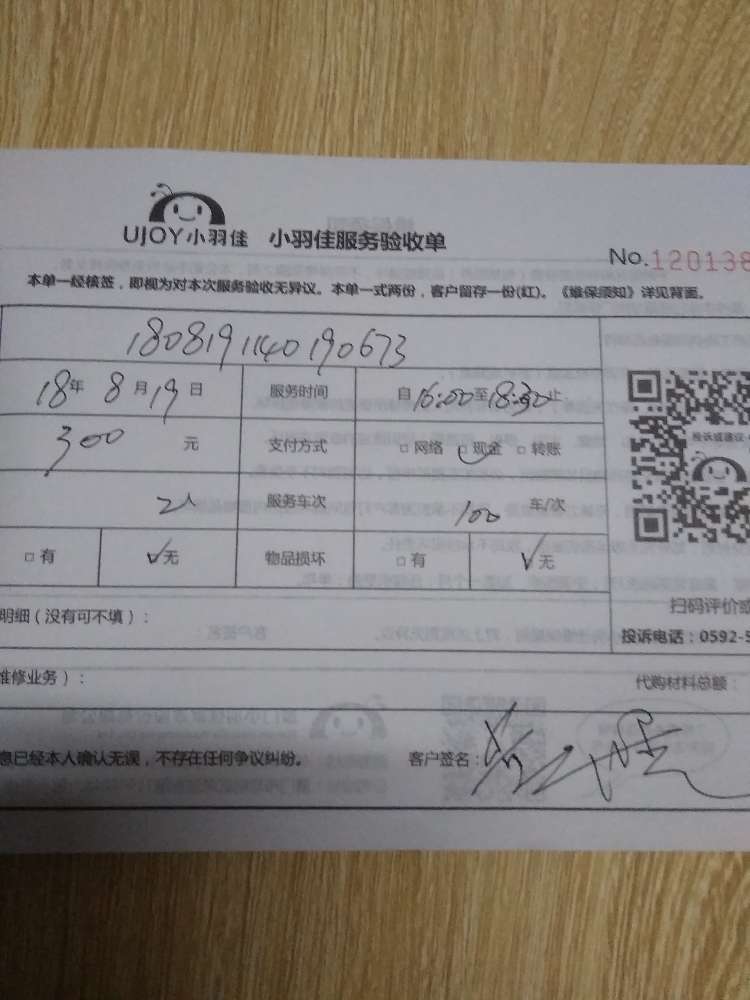 UJOY小羽佳 小羽佳服务验收单
No.120138
本单一经核签，即视为对本次服务验收无异议。本单一式两份，客户留存一份(红)。《维保须知》详见背面。
1808191140190673
18年8月19日 服务时间 自16:00至18:30止
300元 支付方式 □网络 □现金 □转账
2人 服务车次 100 车/次
□有 ✓无 物品损坏 □有 ✓无
投诉或建议
扫码评价或
明细（没有可不填）：
投诉电话：0592-5
维修业务）：
代购材料总额：
息已经本人确认无误，不存在任何争议纠纷。 客户签名：